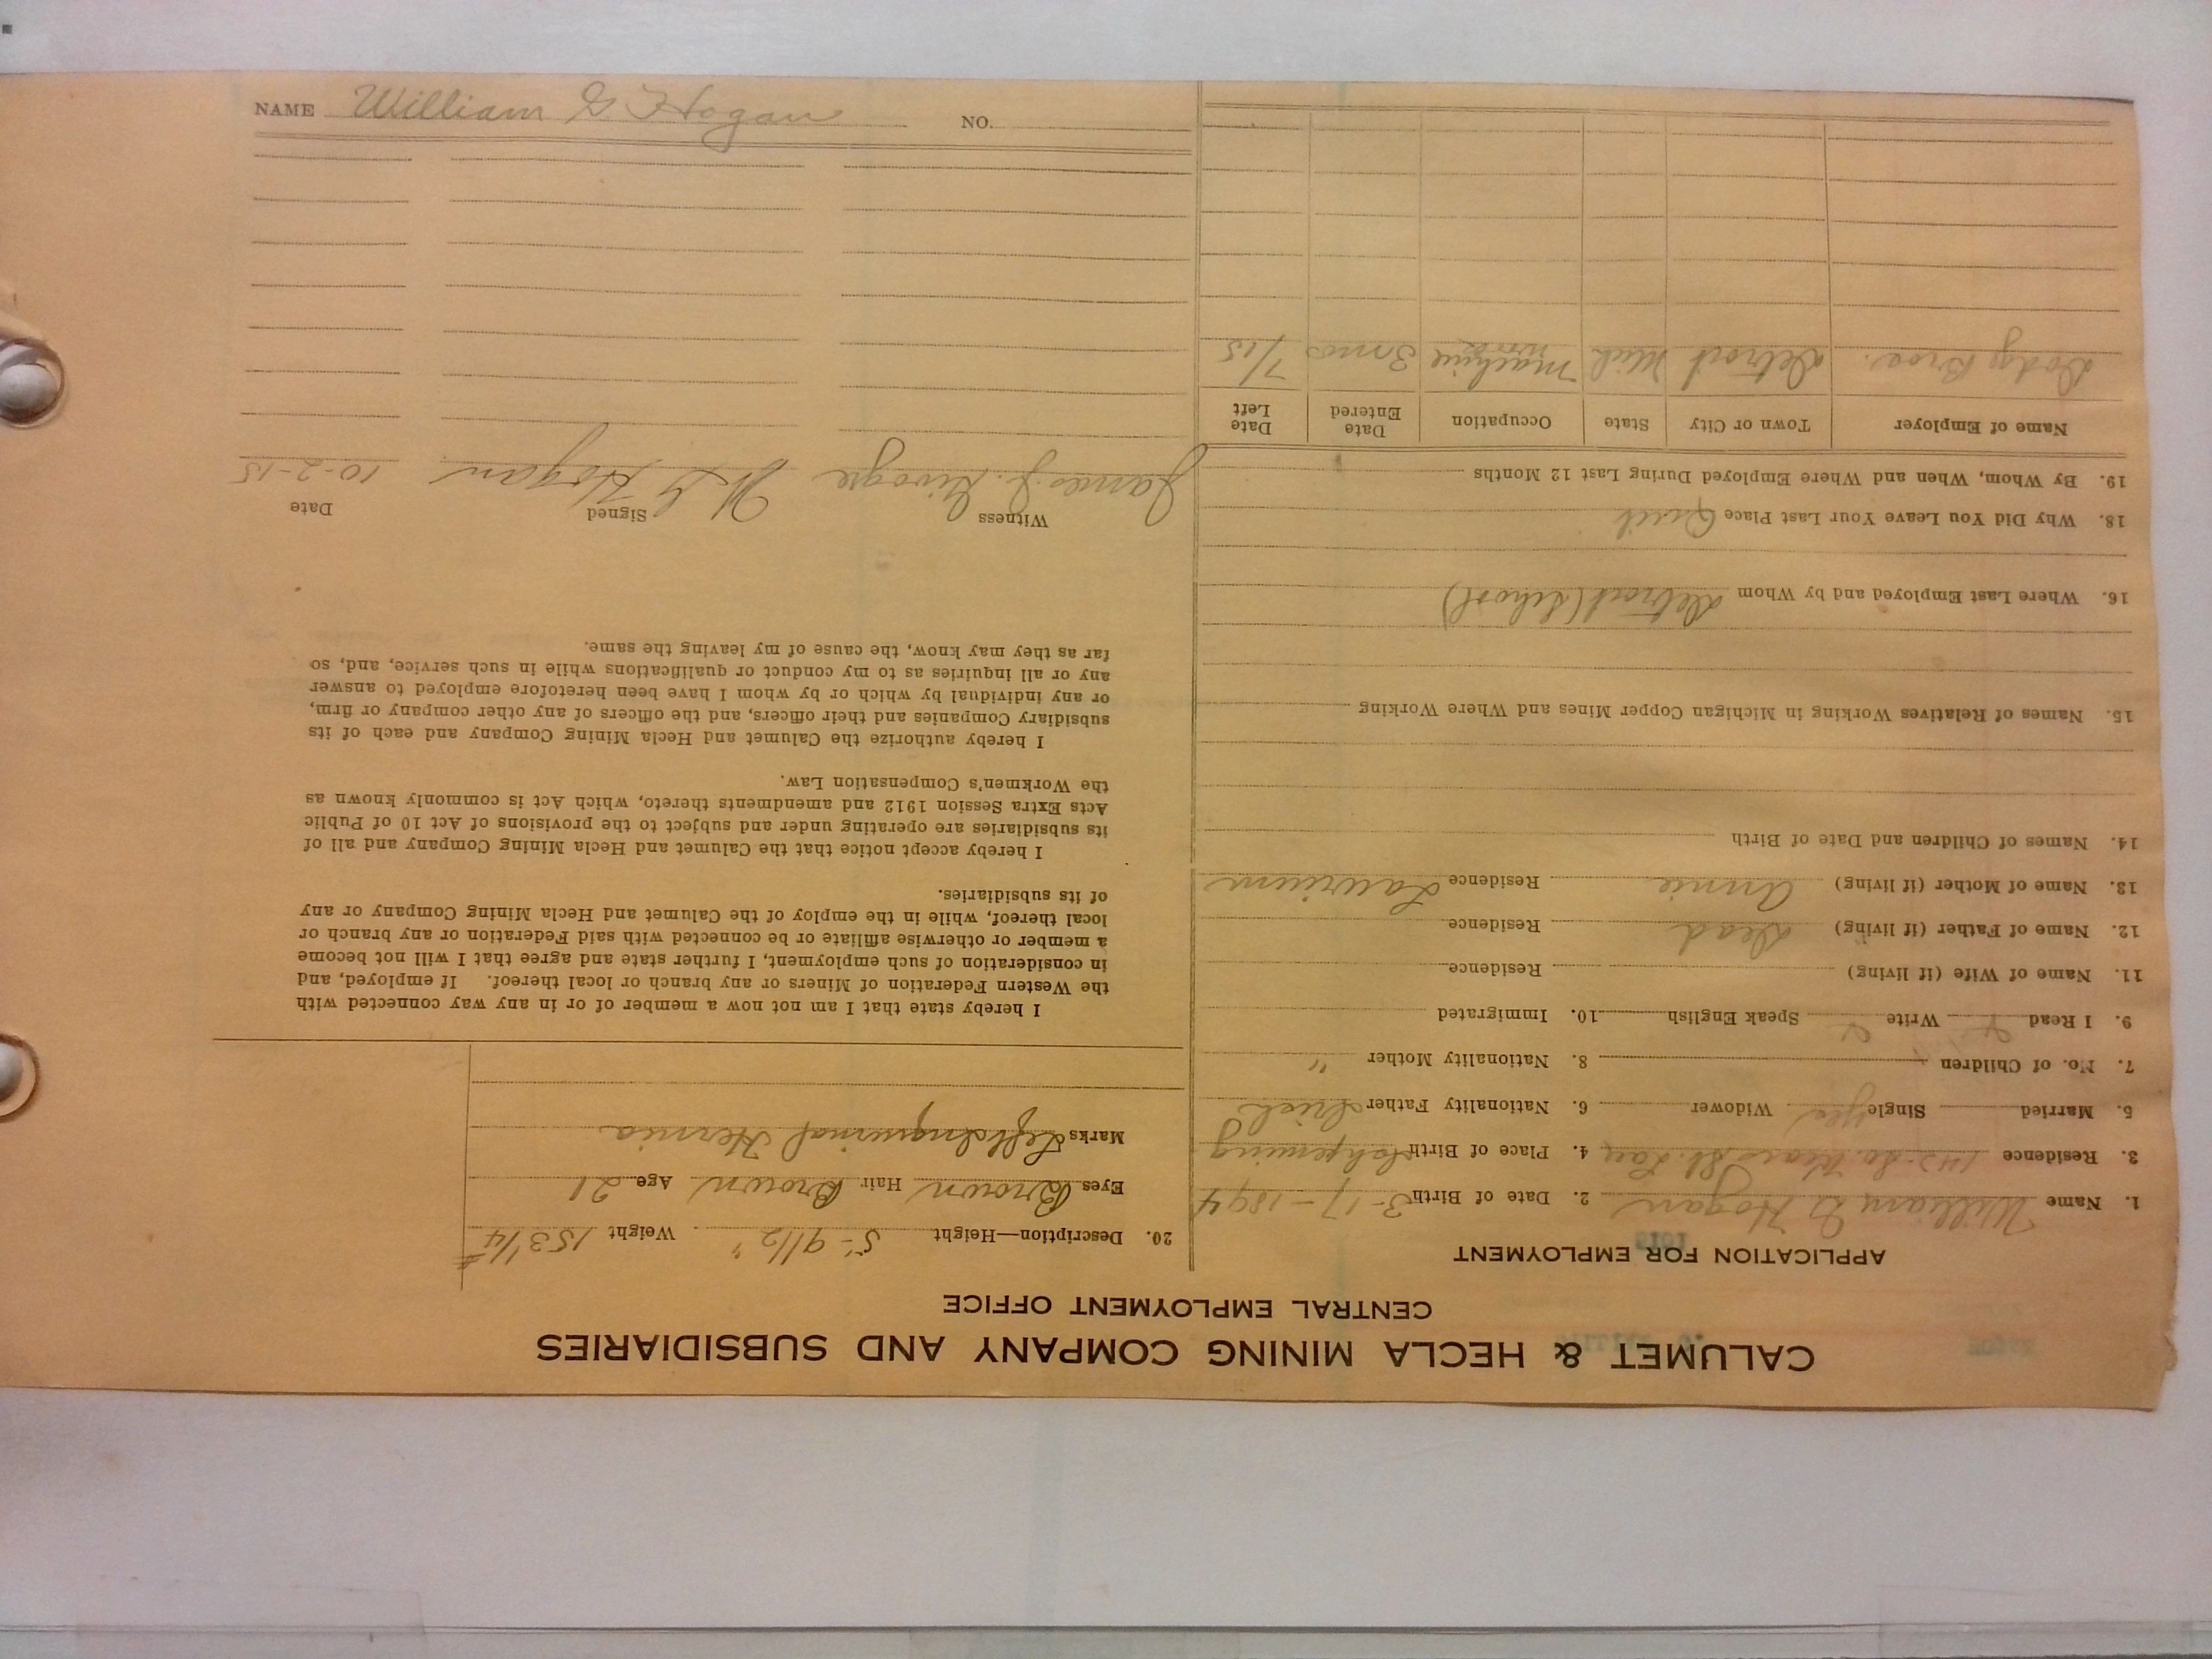 CALUMET & HECLA MINING COMPANY AND SUBSIDIARIES
CENTRAL EMPLOYMENT OFFICE
APPLICATION FOR EMPLOYMENT
1. Name William G Hogan 2. Date of Birth 3-17-1894
3. Residence So. St. Lau 4. Place of Birth Ishpeming
5. Married Single yes Widower 6. Nationality Father Irish
7. No. of Children 8. Nationality Mother "
9. I Read Write Speak English 10. Immigrated
11. Name of Wife (if living) Residence
12. Name of Father (if living) Dead Residence
13. Name of Mother (if living) Annie Residence Laurium
14. Names of Children and Date of Birth
15. Names of Relatives Working in Michigan Copper Mines and Where Working
16. Where Last Employed and by Whom Detroit (School)
18. Why Did You Leave Your Last Place Quit
19. By Whom, When and Where Employed During Last 12 Months
Name of Employer Town or City State Occupation Date Entered Date Left
Dodg Bros. Detroit Mich Machine work 3 mos 7/15
20. Description—Height 5'-9 1/2" Weight 153 1/4 #
Eyes Brown Hair Brown Age 21
Marks Left Inguinal Hernia
I hereby state that I am not now a member of or in any way connected with
the Western Federation of Miners or any branch or local thereof. If employed, and
in consideration of such employment, I further state and agree that I will not become
a member or otherwise affiliate or be connected with said Federation or any branch or
local thereof, while in the employ of the Calumet and Hecla Mining Company or any
of its subsidiaries.
I hereby accept notice that the Calumet and Hecla Mining Company and all of
its subsidiaries are operating under and subject to the provisions of Act 10 of Public
Acts Extra Session 1912 and amendments thereto, which Act is commonly known as
the Workmen's Compensation Law.
I hereby authorize the Calumet and Hecla Mining Company and each of its
subsidiary Companies and their officers, and the officers of any other company or firm,
or any individual by which or by whom I have been heretofore employed to answer
any or all inquiries as to my conduct or qualifications while in such service, and, so
far as they may know, the cause of my leaving the same.
Witness Signed Date
James J. W. G Hogan 10-2-15
NAME William G Hogan NO.